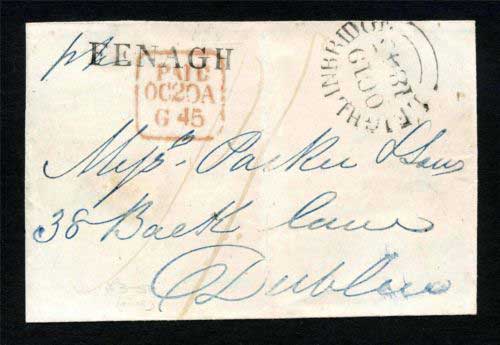 pd
FENAGH
PAID
OC20A
G 45
LEIGHLINBRIDGE
OC19
1845
Messrs. Parker & Sons
38 Back lane
Dublin